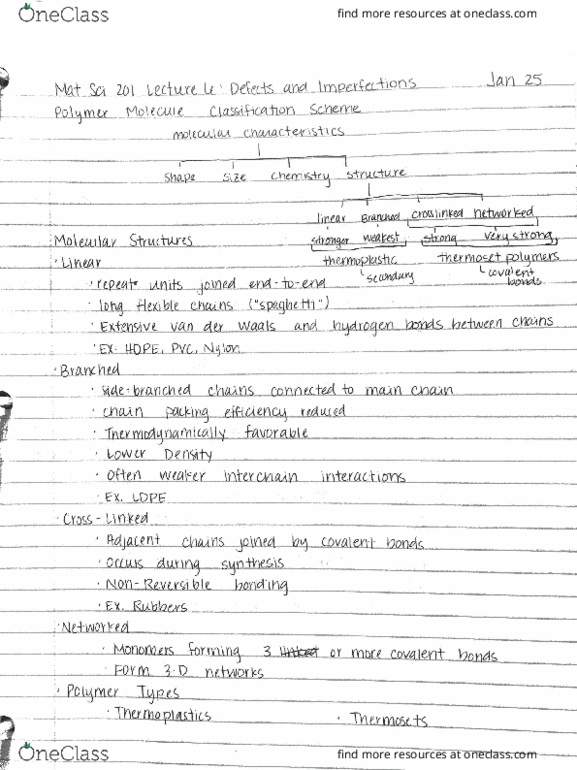 OneClass find more resources at oneclass.com
Mat Sci 201 Lecture 6: Defects and Imperfections Jan 25
Polymer Molecule Classification Scheme
molecular characteristics
shape size chemistry structure
linear Branched crosslinked networked
stronger weakest strong very strong
Molecular Structures
thermoplastic thermoset polymers
secondary covalent bonds
· Linear
· repeat units joined end-to-end
· long flexible chains ("spaghetti")
· Extensive van der Waals and hydrogen bonds between chains
· EX: HDPE, PVC, Nylon
· Branched
· side-branched chains connected to main chain
· chain packing efficiency reduced
· Thermodynamically favorable
· Lower Density
· Often weaker interchain interactions
· Ex. LDPE
· Cross-Linked
· Adjacent chains joined by covalent bonds
· Occurs during synthesis
· Non-Reversible bonding
· Ex. Rubbers
· Networked
· Monomers forming 3 or more covalent bonds
· Form 3-D networks
· Polymer Types
· Thermoplastics · Thermosets
OneClass find more resources at oneclass.com